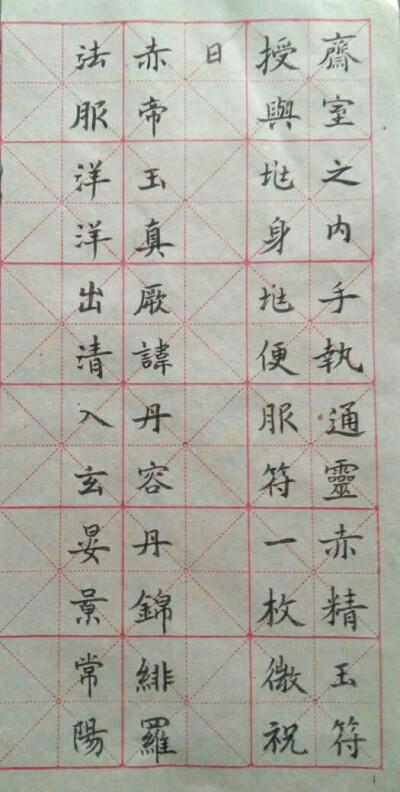 齋室之内手執通靈赤精玉符
授與地身地便服符一枚微祝
日
赤帝玉真厥諱丹容丹錦緋羅
法服洋洋出清入玄晏景常陽